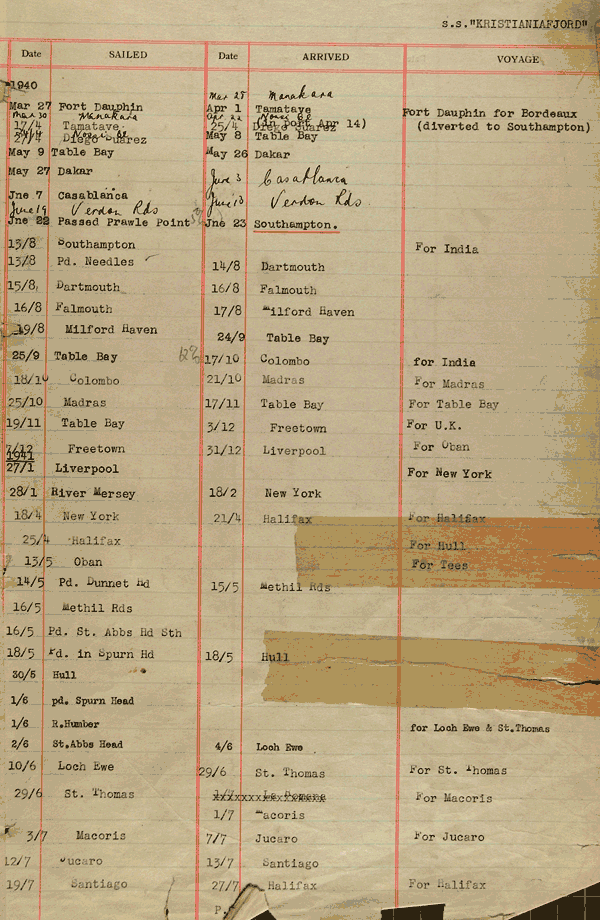 s.s."KRISTIANIAFJORD"
Date SAILED Date ARRIVED VOYAGE
1940
Mar 27 Manakara
Mar 27 Fort Dauphin Apr 1 Tamatave Fort Dauphin for Bordeaux
Mar 30 Manakara Apr 22 Nossi Be (in port Apr 14) (diverted to Southampton)
17/4 Tamatave 25/4 Diego Suarez
27/4 Diego Suarez May 8 Table Bay
May 9 Table Bay May 26 Dakar
May 27 Dakar June 3 Casablanca
Jne 7 Casablanca June 10 Verdon Rds.
June 19 Verdon Rds
Jne 22 Passed Prawle Point Jne 23 Southampton.
13/8 Southampton For India
13/8 Pd. Needles 14/8 Dartmouth
15/8 Dartmouth 16/8 Falmouth
16/8 Falmouth 17/8 Milford Haven
19/8 Milford Haven 24/9 Table Bay
25/9 Table Bay 17/10 Colombo for India
18/10 Colombo 21/10 Madras For Madras
25/10 Madras 17/11 Table Bay For Table Bay
19/11 Table Bay 3/12 Freetown For U.K.
7/12 Freetown 31/12 Liverpool For Oban
1941
27/1 Liverpool For New York
28/1 River Mersey 18/2 New York
18/4 New York 21/4 Halifax For Halifax
25/4 Halifax For Hull
13/5 Oban For Tees
14/5 Pd. Dunnet Hd 15/5 Methil Rds
16/5 Methil Rds
16/5 Pd. St. Abbs Hd Sth
18/5 Pd. in Spurn Hd 18/5 Hull
30/5 Hull
1/6 pd. Spurn Head
1/6 R.Humber for Loch Ewe & St.Thomas
2/6 St.Abbs Head 4/6 Loch Ewe
10/6 Loch Ewe 29/6 St. Thomas For St. Thomas
29/6 St. Thomas 1/7 For Macoris
1/7 Macoris
3/7 Macoris 7/7 Jucaro For Jucaro
12/7 Jucaro 13/7 Santiago
19/7 Santiago 27/7 Halifax For Halifax
P.